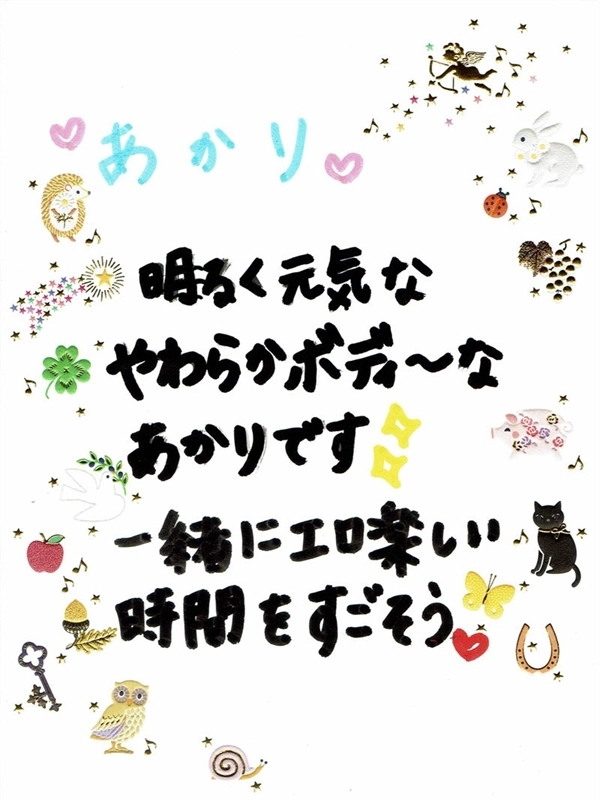 あかり
明るく元気な
やわらかボディ～な
あかりです
一緒にエロ楽しい
時間をすごそう